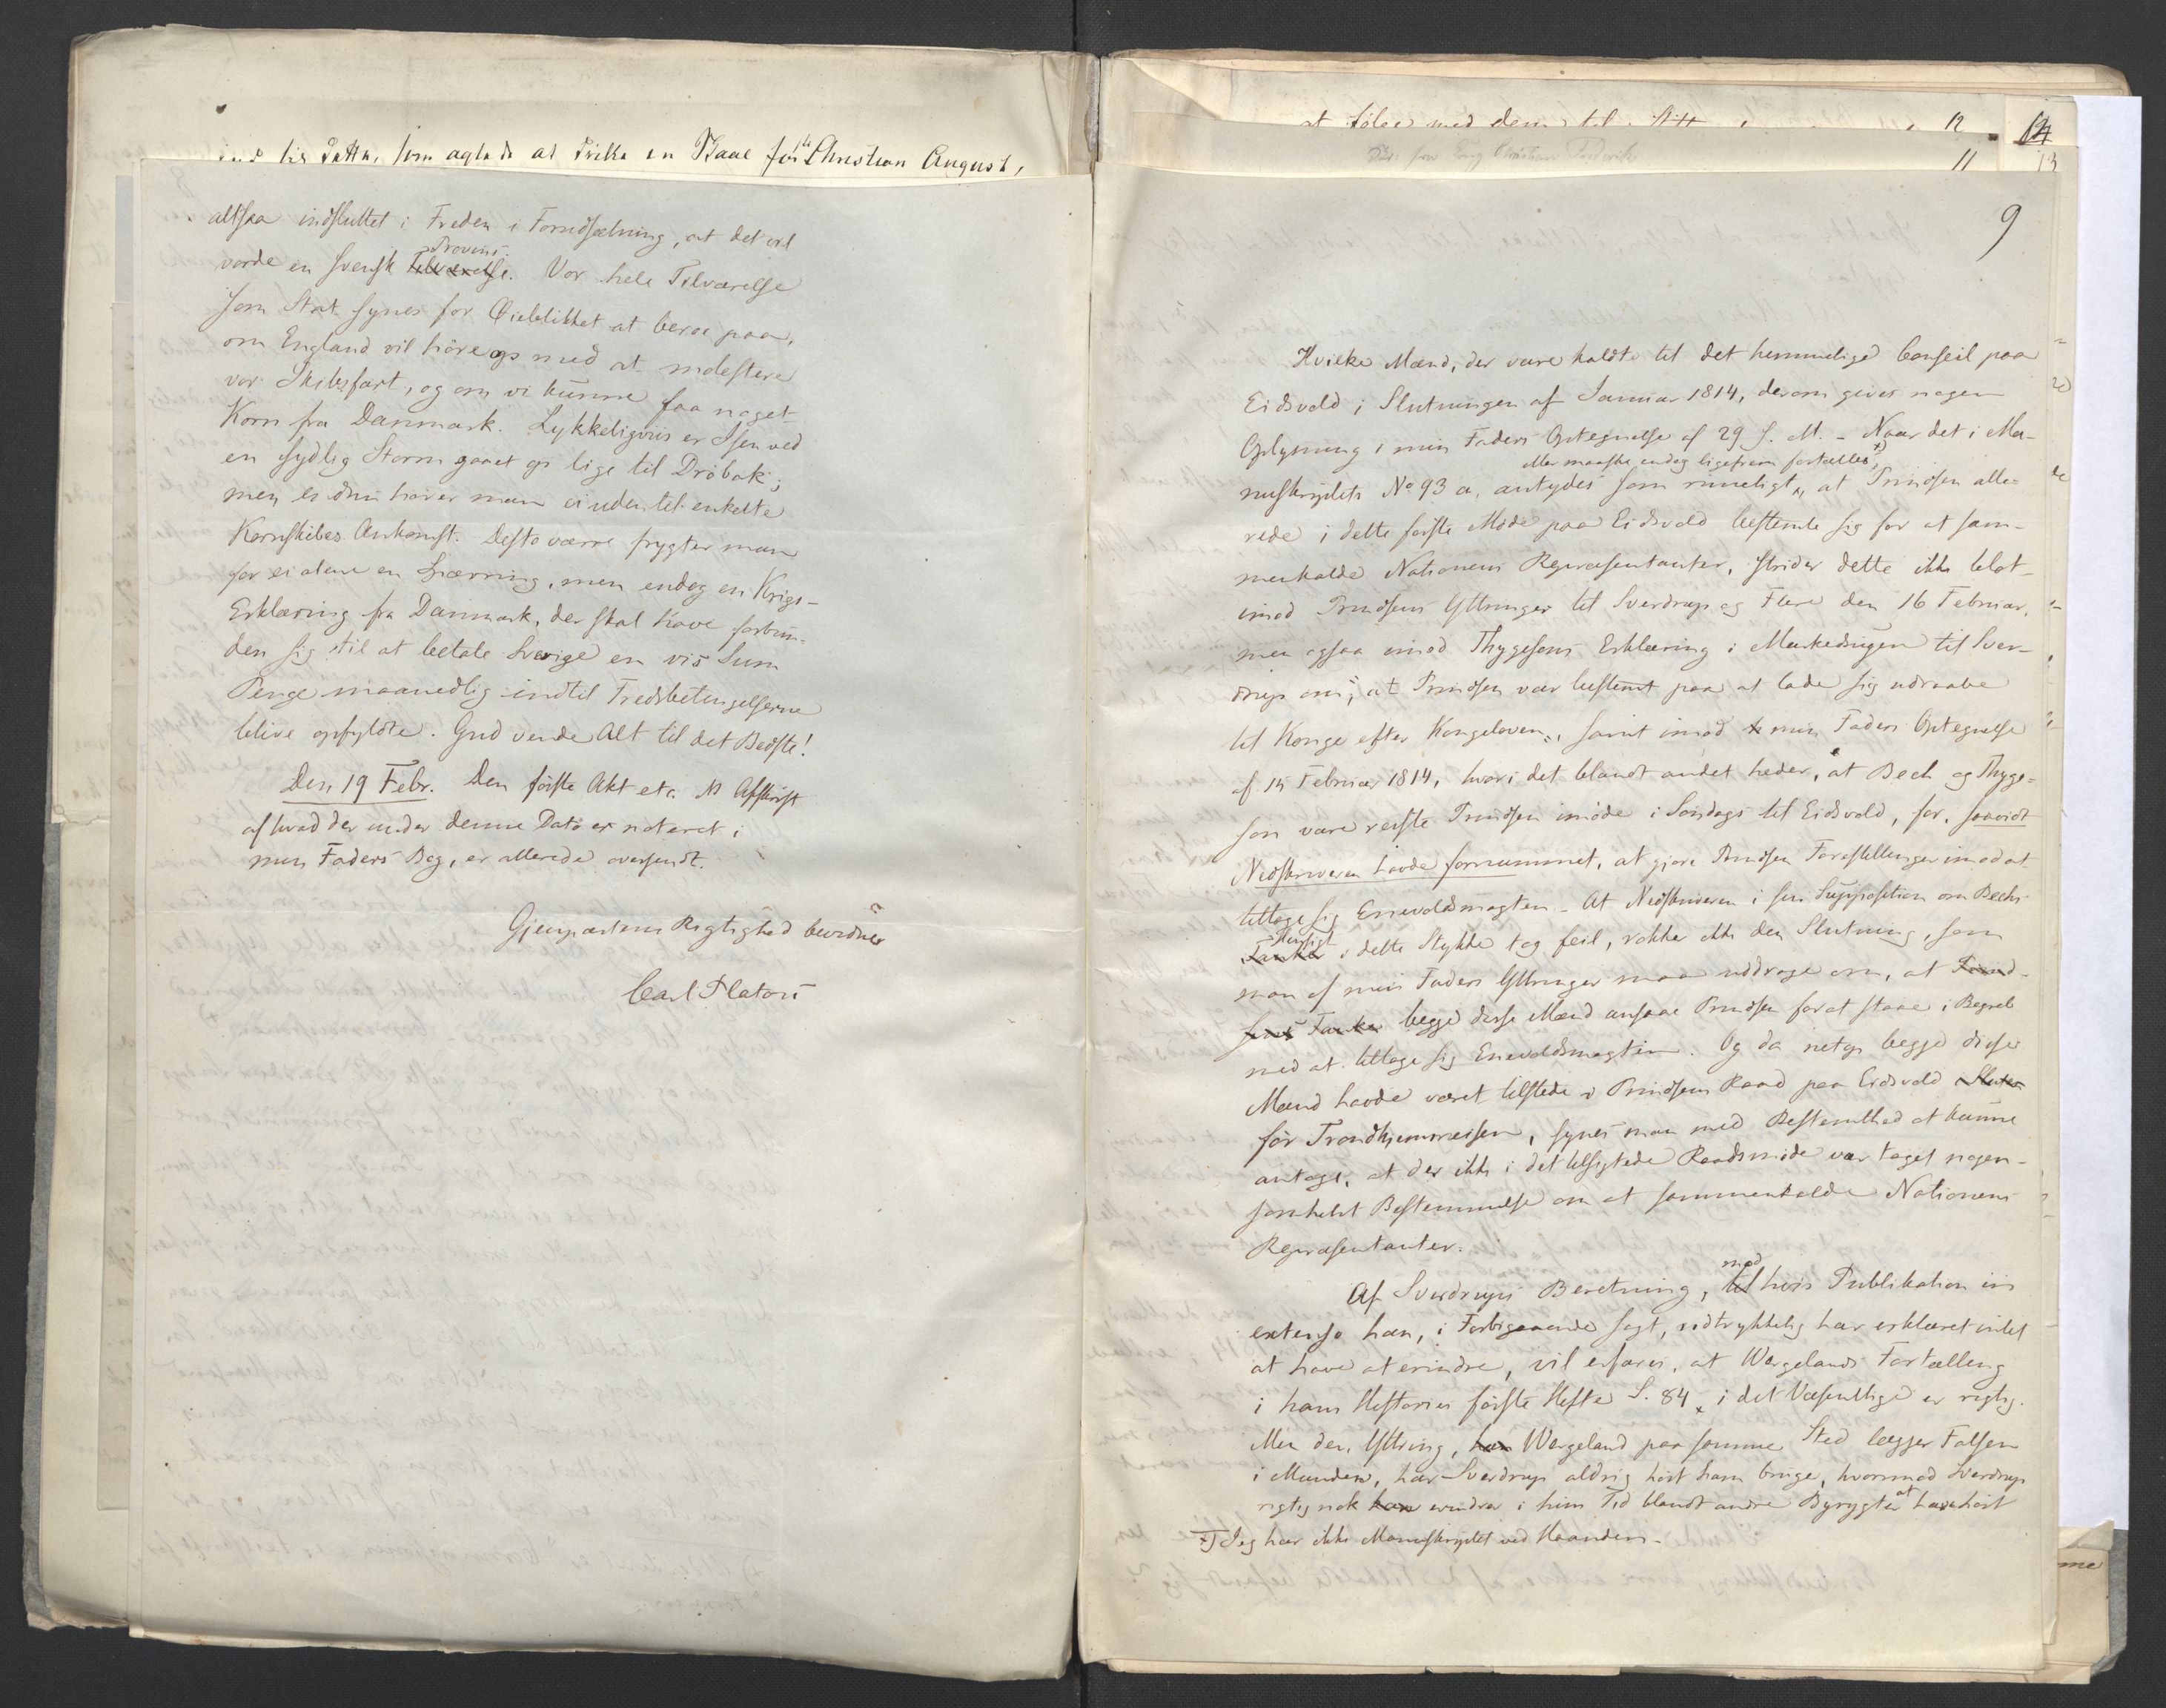 som agtede at drikke en Skaal for Christian August,
altsaa indsluttet i Freden i Forudsætning, at det vil
Provins.
vorde en svensk Tilværelse. Vor hele Tilværelse
som Stat synes for Øieblikket at beroe paa,
om England vil høre op med at molestere
vor Skibsfart, og om vi kunne faa noget
Korn fra Danmark. Lykkeligviis er Isen ved
en sydlig Storm gaaet op lige til Drøbak;
men endnu hører man ei uden til enkelte
Kornskibes Ankomst. Desto værre frygter man
for ei alene en Spærring, men endog en Krigs-
Erklæring fra Danmark, der skal have forbun-
den sig til at betale Sverige en vis Sum
Penge maanedlig indtil Fredsbetingelserne
blive opfyldte. Gud vende Alt til det Bedste!
Den 19 Febr. Den første Akt etc. Afskrift
af hvad der under denne Dato er noteret i
min Faders Bog, er allerede oversendt.
Gjenpartens Rigtighed bevidner
Carl Platou
at følge med dem til
12
11
13
9
Hvilke Mænd, der vare kaldte til det hemmelige Conseil paa
Eidsvold i Slutningen af Januar 1814, derom giver nogen
Oplysning i min Faders Optegnelse af 29 s. M. - Naar det i Ma-
eller maaske endog ligefrem fortælles
nuskriptets No 93 a, antydes som rimeligt, at Prindsen alle-
rede i dette første Møde paa Eidsvold bestemte sig for at sam-
menkalde Nationens Repræsentanter, strider dette ikke blot
imod Prindsens Yttringer til Sverdrup og Flere den 16 Februar,
men ogsaa imod Thygesons Erklæring i Markedsugen til Sver-
drup om, at Prindsen var bestemt paa at lade sig udraabe
til Konge efter Kongeloven, samt imod min Faders Optegnelse
af 15 Februar 1814, hvori det blandt andet heder, at Bech og Thyge-
son vare reiste Prindsen imøde i Søndags til Eidsvold, for, saavidt
Nedskriveren havde fornummet, at gjøre Prindsen Forestillinger imod at
tiltage sig Enevoldsmagten. - At Nedskriveren i sin Supposition om Bechs
Hensigt
Tanker i dette Stykke tog feil, rokker ikke den Slutning, som
man af min Faders Yttringer maa uddrage om, at
Tanker begge disse Mænd ansaae Prindsen for at staae i Begreb
med at tiltage sig Enevoldsmagten. Og da netop begge disse
Mænd havde været tilstede i Prindsens Raad paa Eidsvold
før Trondhjemsreisen, synes man med Bestemthed at kunne
antage, at der ikke i det tilsigtede Raadsmøde var taget nogen-
somhelst Bestemmelse om at sammenkalde Nationens
Repræsentanter.
mod
Af Sverdrups Beretning, til hvis Publikation in
extenso han, i Forbigaaende sagt, udtrykkelig har erklæret intet
at have at erindre, vil erfares, at Wergelands Fortælling
i hans Histories første Hefte S. 84 i det Væsentlige er rigtig.
Men den Yttring, han Wergeland paa samme Sted lægger Falsen
i Munden, har Sverdrup aldrig hørt ham bruge, hvorimod Sverdrup
at
rigtig nok han erindrer i hiin Tid blandt andre Byrygter have hørt
*) Jeg har ikke Manuskriptet ved Haanden.